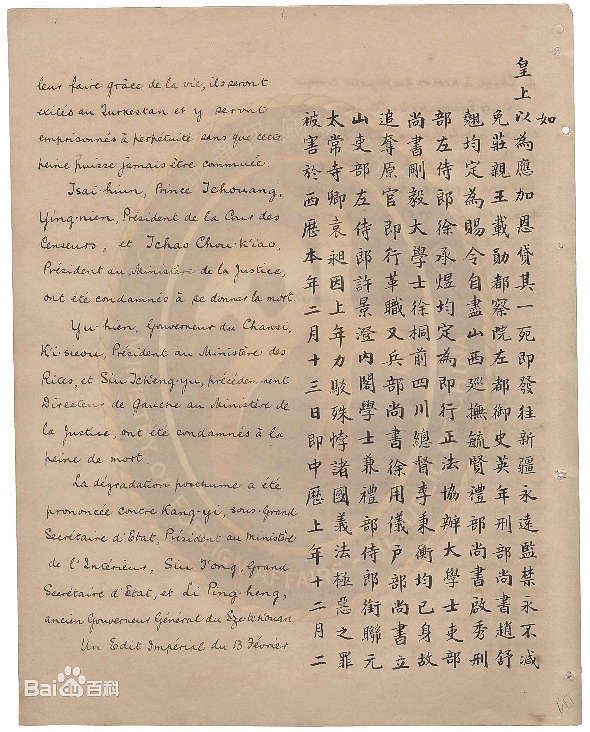 leur faire grâce de la vie, ils seront
exilés au Turkestan et y seront
emprisonnés à perpétuité sans que cette
peine puisse jamais être commuée.
Tsai-hiun, Prince Tchouang,
Ying-nien, Président de la Cour des
Censeurs, et Tchao Chou-K'iao,
Président au Ministère de la Justice,
ont été condamnés à se donner la mort.
Yu-hien, Gouverneur du Chansi,
K'i-sieou, Président au Ministère des
Rites, et Siu Tch'eng-yu, précédemment
Directeur de Gauche au Ministère de
la Justice, ont été condamnés à la
peine de mort.
La dégradation posthume a été
prononcée contre Kang-yi, sous-Grand
Secrétaire d'Etat, Président au Ministère
de l'Intérieur, Siu T'ong, Grand
Secrétaire d'Etat, et Li Ping-heng,
ancien Gouverneur Général du Sze-tch'ouan.
Un Edit Impérial du 13 Février
如
皇上以為應加恩貸其一死即發往新疆永遠監禁永不減
免莊親王載勛都察院左都御史英年刑部尚書趙舒
翹均定為賜令自盡山西廵撫毓賢禮部尚書啟秀刑
部左侍郎徐承煜均定為即行正法協辦大學士吏部
尚書剛毅大學士徐桐前四川總督李秉衡均已身故
追奪原官即行革職又兵部尚書徐用儀戶部尚書立
山吏部左侍郎許景澄內閣學士兼禮部侍郎銜聯元
太常寺卿袁昶因上年力駁殊悖諸國義法極惡之罪
被害於西歷本年二月十三日即中歷上年十二月二
Bai百科